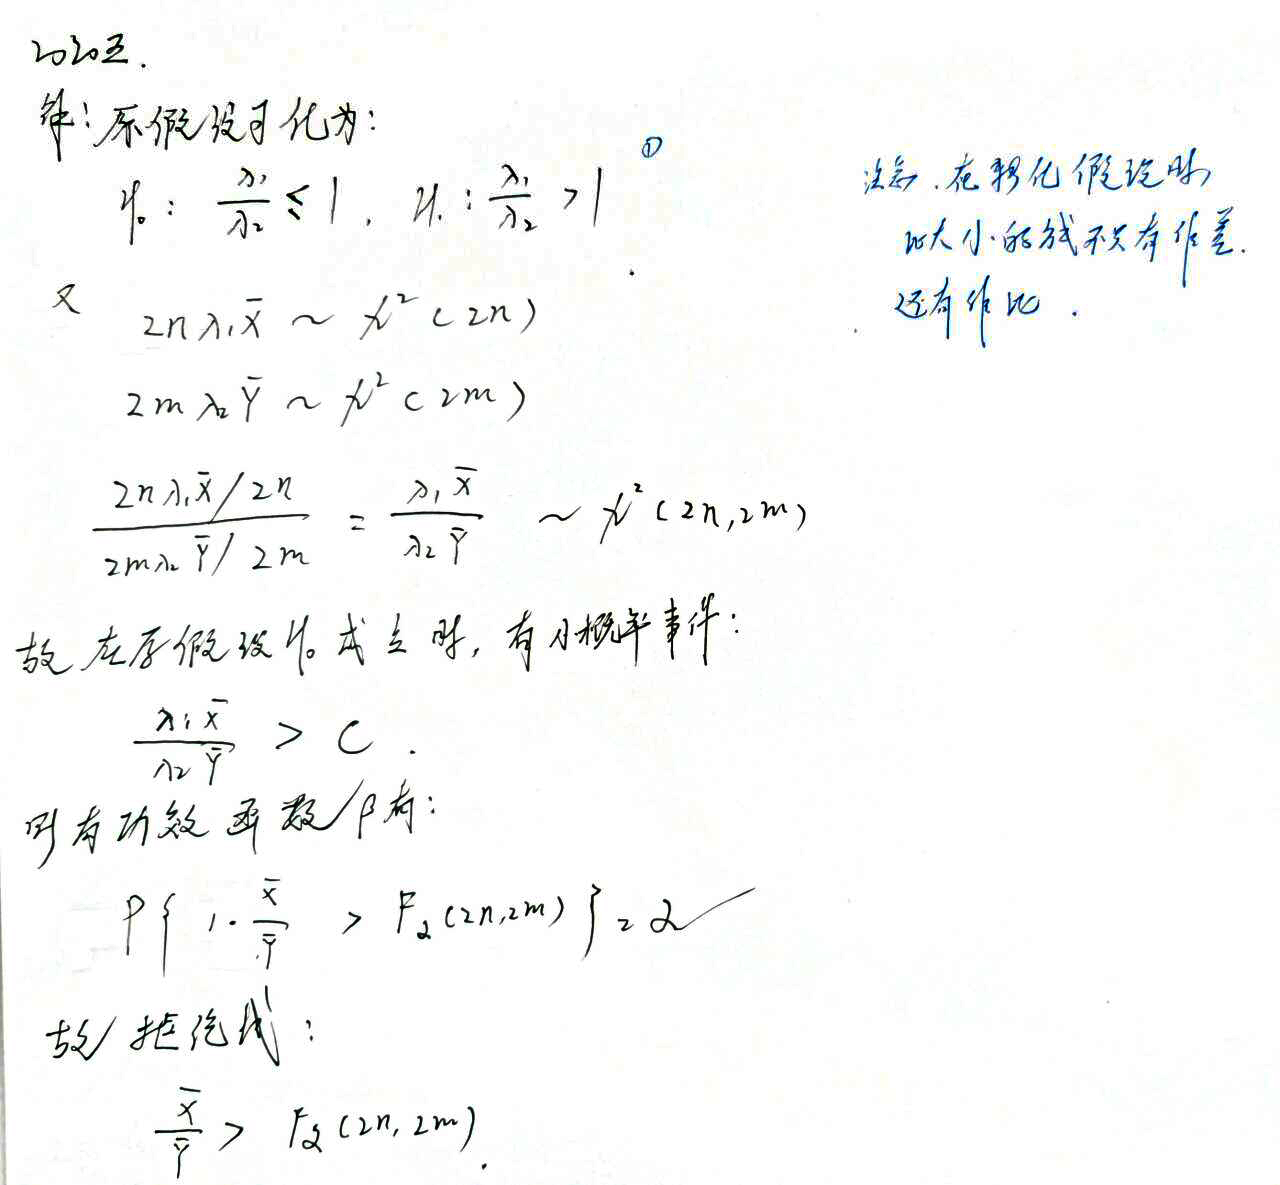 2020五.
解:原假设可化为:
H₀: λ₁/λ₂ ≤ 1, H₁: λ₁/λ₂ > 1 ①
又 2nλ₁X̄ ~ χ²(2n)
2mλ₂Ȳ ~ χ²(2m)
(2nλ₁X̄/2n)/(2mλ₂Ȳ/2m) = λ₁X̄/λ₂Ȳ ~ χ²(2n,2m)
故在原假设H₀成立时,有小概率事件:
λ₁X̄/λ₂Ȳ > C.
则有功效函数β有:
P{1·X̄/Ȳ > Fα(2n,2m)} = α
故拒绝域:
X̄/Ȳ > Fα(2n,2m).
注意.在转化假设时,
比大小的方式不只有作差.
还有作比.